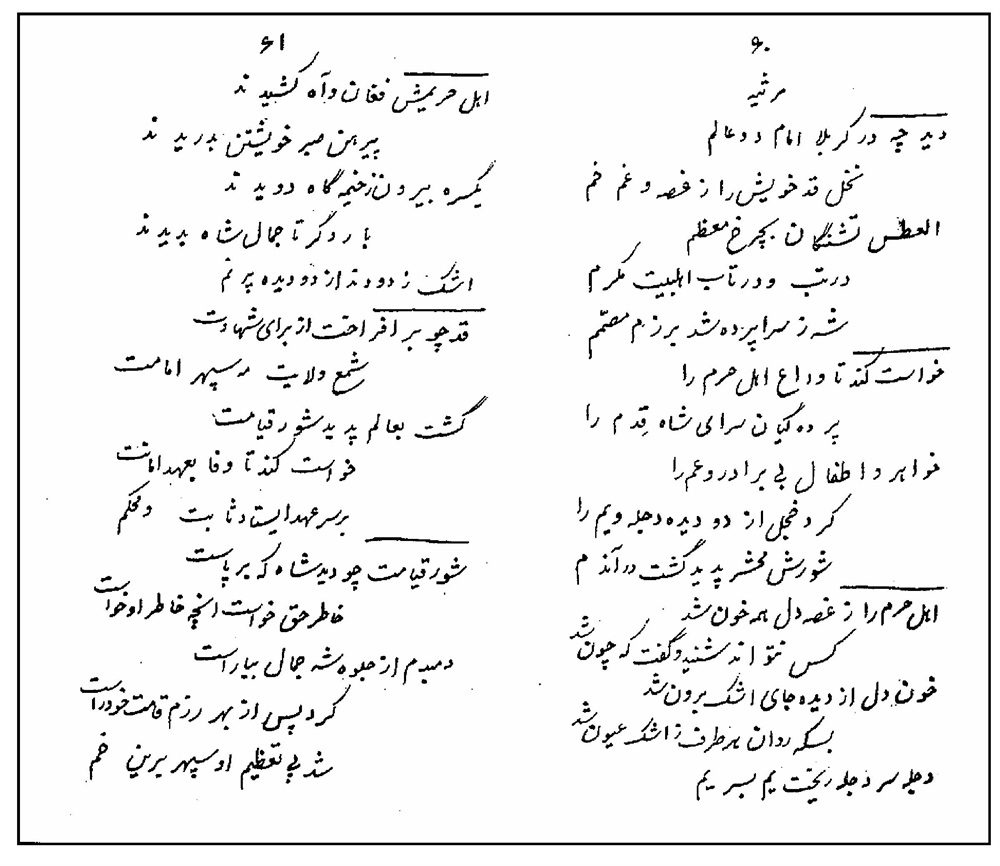 ۶۰
مرثیه
دید چه در کربلا امام دو عالم
نخل قد خویش را ز غصه و غم خم
العطش تشنگان بچرخ معظم
در تب و در تاب اهلبیت مکرم
شه ز سراپرده شد برزم مصمم
خواست کند تا وداع اهل حرم را
پرده گیان سرای شاه قِدم را
خواهر و اطفال بی برادر و عم را
کرد خجل از دو دیده دجله و یم را
شورش محشر پدید گشت در آندم
اهل حرم را ز غصه دل همه خون شد
کس نتواند شنید و گفت که چون شد
خون دل از دیده جای اشک برون شد
بسکه روان هر طرف ز اشک عیون شد
دجله سر دجله ریخت یم بسر یم
۶۱
اهل حریمش فغان و آه کشیدند
پیرهن صبر خویشتن بدریدند
یکسره بیرون ز خیمه گاه دویدند
بار دگر تا جمال شاه بدیدند
اشک زدودند از دو دیده پر نم
قد چو بر افراخت از برای شهادت
شمع ولایت مه سپهر امامت
گشت بعالم پدید شور قیامت
خواست کند تا وفا بعهد امانت
بر سر عهد ایستاد ثابت و محکم
شور قیامت چو دید شاه که بر پاست
خاطر حق خواست انچه خاطر او خواست
دمبدم از جلوه شه جمال بیاراست
کرد پس از بهر رزم قامت خود راست
شد پی تعظیم او سپهر برین خم